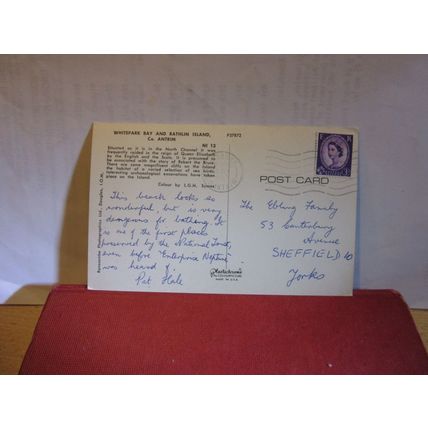 WHITEPARK BAY AND RATHLIN ISLAND,
Co. ANTRIM
NI 13
F37872
Situated as it is in the North Channel it was
frequently raided in the reign of Queen Elizabeth
by the English and the Scots. It is presumed to
be associated with the story of Robert the Bruce.
There are some magnificent cliffs on the Island
the habitat of a varied selection of sea birds.
Interesting archaeological excavations have taken
place on the Island.
Colour by I.O.M.
This beach looks so
wonderful, but is very
dangerous for bathing. It
is one of the first places
preserved by the National Trust,
even before "Enterprise Neptune"
was heard of.
Pat Hale
POST CARD
The Ebling Family
53 Canterbury
Avenue
SHEFFIELD 10
Yorks
Plastichrome